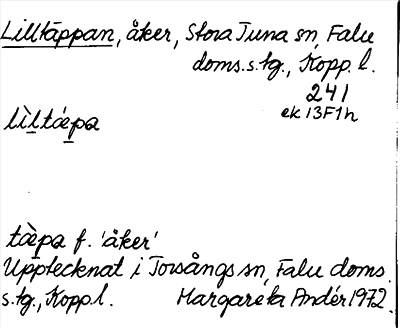 Lilltäppan, åker, Stora Tuna sn, Falu
doms.s.tg., Kopp. l.
241
ek 13F1h
lìltǽpa
tæ̀pa f. 'åker'
Upptecknat i Torsångs sn, Falu doms.
s.tg., Kopp. l. Margareta Andér 1972.